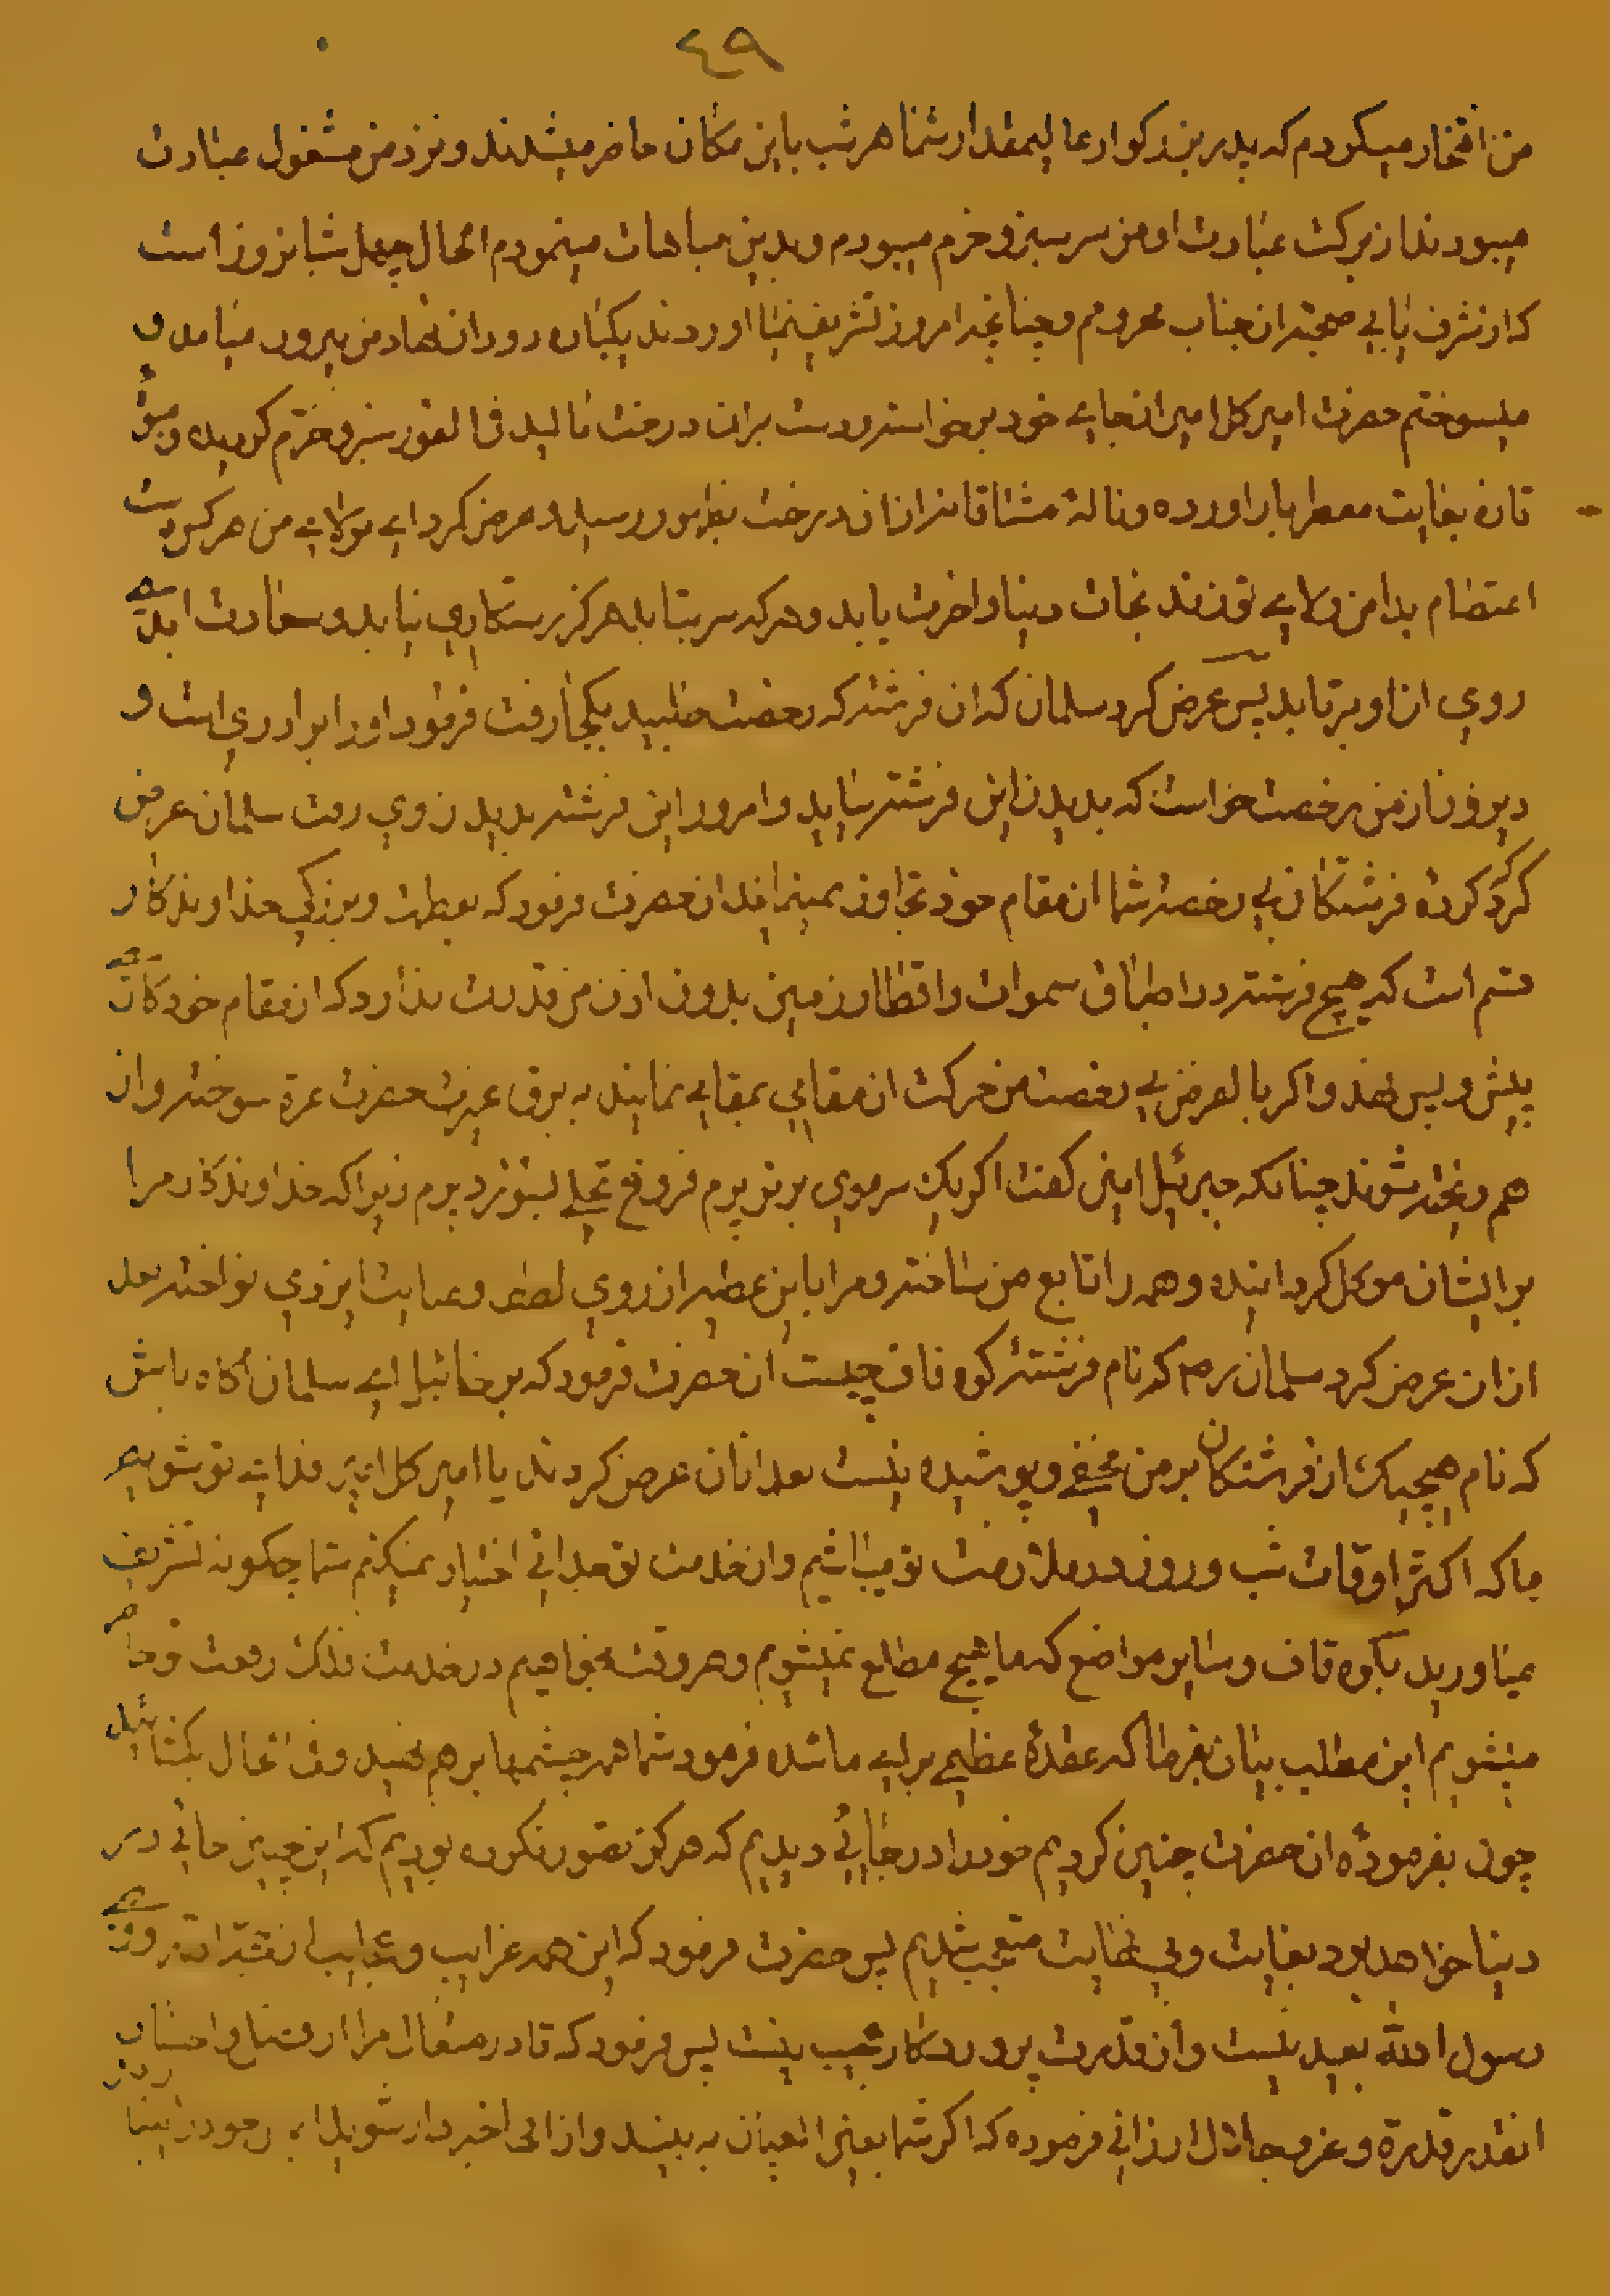 ٤٩
من افتخار میکردم که پدر بزرکوار عالیمقدار شما هر شب باین مکان حاضر میشدند و نزد من مشغول عبادت
میبودند از برکت عبادت او من سرسبز و خرم میبودم و بدین مباهات مینمودم الحال چهل شبانروز است
که از شرف یابی صحبت ان جناب محرومم و چنانچه امروز تشریف نمیاوردند یکباره دود از نهاد من بیرون میامد و
میسوختم حضرت امیر کل امیر از جای خود برخواسته دست بران درخت مالید فی الفور سبز و خرم کردید و میوۀ
تازه بغایت معطر بار اورده و نالۀ مشتاقانه از ان درخت بظهور رسید و عرض کرد ای مولای من هر که دست
اعتصام بدامن ولای تو زند نجات دنیا و اخرت یابد و هر که سر بتابد هرکز رستکاری نیابد و سعادت ابدی
روی از او برتابد پس عرض کرد سلمان که ان فرشته که رخصت طلبید بکجا رفت فرمود او را برادری است و
دیروز از من رخصت خواست که بدیدن این فرشته بیاید و امروز این فرشته بدیدن وی رفت سلمان عرض
کرد کرد فرشتکان بی رخصت شما از مقام خود تجاوز نمیتوانند ان حضرت فرمود که بعظمت و بزرکی خداوندکار
قسم است که هیچ فرشته در اطباق سموات و اقطار زمین بدون اذن من قدرت ندارد که از مقام خود کامی
پیش و پس نهند و اکر بالفرض بی رخصت من حرکت از مقامی بمقامی نمایند به برق غیرت حضرت عزة سوخته و از
هم ریخته شوند چنانکه جبرئیل امین کفت اکر یک سر موی برتر پرم فروغ تجلی بسوزد پرم زیرا که خداوندکار مرا
بر ایشان موکل کردانیده و همه را تابع من ساخته و مرا باین عطیه از روی لطف و عنایت ایزدی نواخته بعد
از ان عرض کرد سلمان رض که نام فرشتۀ کوه قاف چیست ان حضرت فرمود که برخائیل ای سلمان اکاه باش
که نام هیچیک از فرشتکان بر من مخفی و پوشیده نیست بعد ازان عرض کردند یا امیر کل امیر فدای تو شویم
ما که اکثر اوقات شب و روز در ملازمت تو میباشیم و از خدمت تو جدائی اختیار نمیکنیم شما چکونه تشریف
میاورید بکوه قاف و سایر مواضع که ما هیچ مطلع نمیشویم و هر وقت میخواهیم در خدمت فلک رفعت حاضر
میشویم این مطلب بیان بفرما که عقدۀ عظیمی برای ما شده فرمود شما همه چشمها بر هم نهید و فی الحال بکشائید
چون بفرمودۀ ان حضرت چنین کردیم خود را در جائی دیدیم که هرکز تصور نکرده بودیم که این چنین جائی در
دنیا خواهد بود بغایت و بی نهایت متعجب شدیم پس حضرت فرمود که این همه غرایب و عجایب از بقیة الله و وصی
رسول الله بعید نیست و از قدرت پروردکار عجیب نیست پس فرمود که قادر متعال مرا از فضل و احسان
انقدر قدرة و عز و جلال ارزانی فرموده که اکر شما بعین العیان به بینید و از انها خبردار شوید